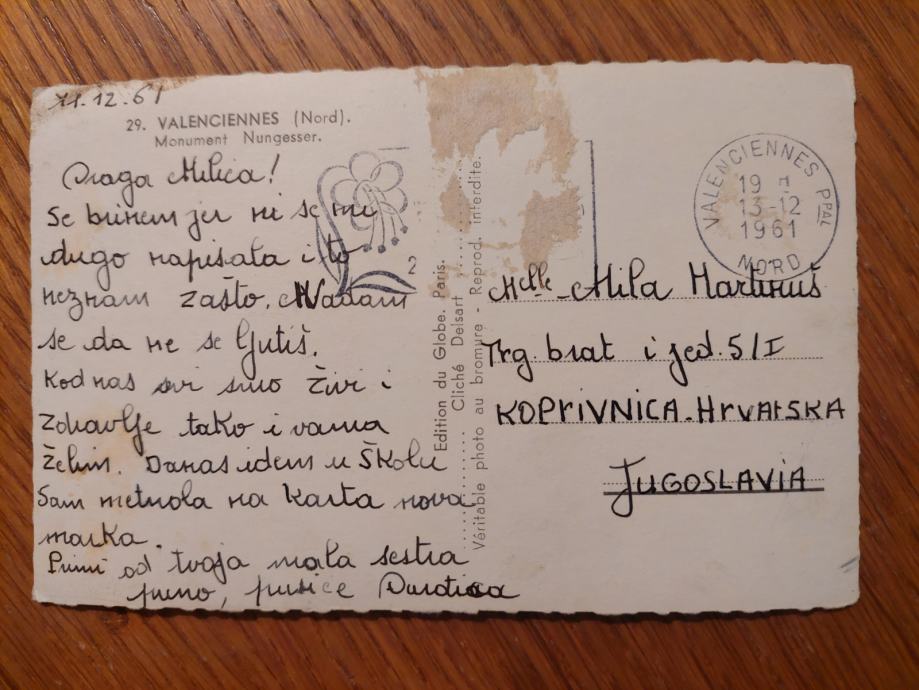 11.12.61
29. VALENCIENNES (Nord).
Monument Nungesser.
Draga Milica!
Se brinem jer ni se mi
dugo napisala i to
neznam zašto. Nadam
se da ne se ljutiš.
Kod nas svi smo živi i
zdravlje tako i vama
želim. Danas idem u školu
Sam metnola na karta nova
marka.
Primi od tvoja mala sestra
puno, pusice
Edition du Globe. Paris.
Cliché Delsart
Véritable photo au bromure - Reprod. interdite.
2
VALENCIENNES PPAL
19 H
13-12
1961
NORD
Melle - Mila Martinuš
Trg. brat i jed. 5/I
KOPRIVNICA. HRVATSKA
JUGOSLAVIA